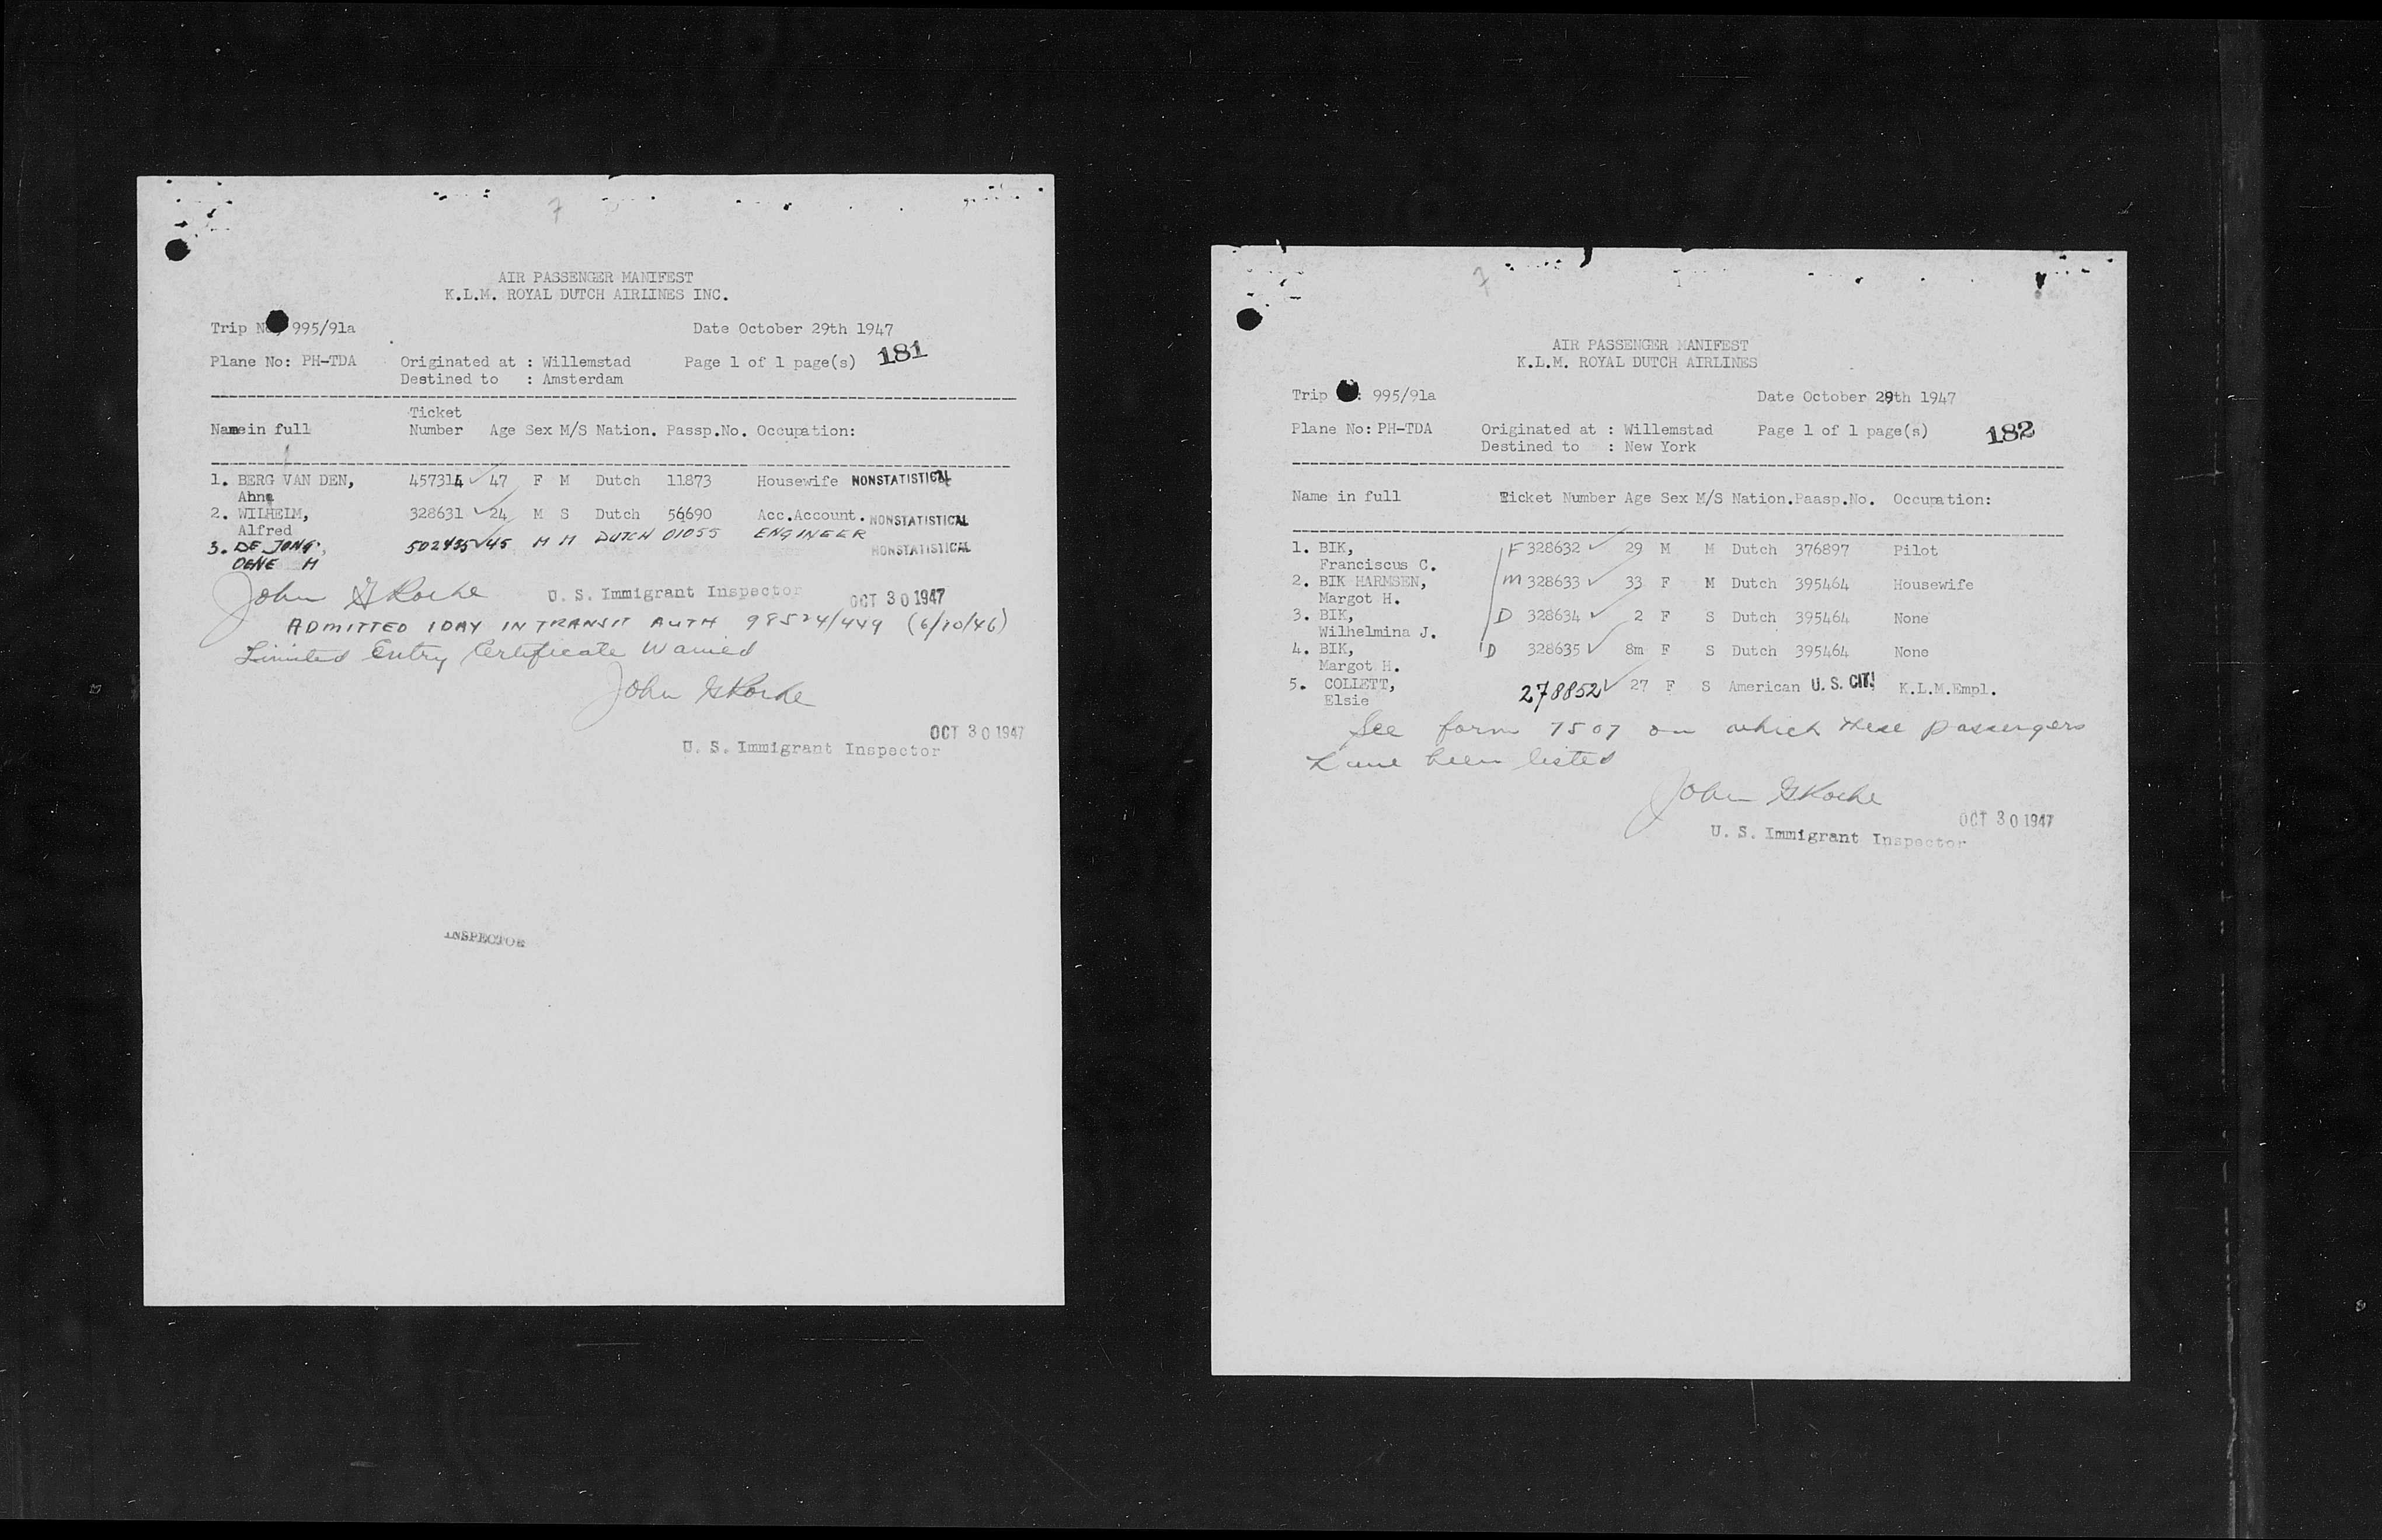 7
AIR PASSENGER MANIFEST
K.L.M. ROYAL DUTCH AIRLINES INC.
Trip No 995/91a Date October 29th 1947
Plane No: PH-TDA Originated at : Willemstad Page 1 of 1 page(s) 181
Destined to : Amsterdam
Ticket
Name in full Number Age Sex M/S Nation. Passp.No. Occupation:
1. BERG VAN DEN, 457314 ✓ 47 F M Dutch 11873 Housewife NONSTATISTICAL
Ahna
2. WILHEIM, 328631 ✓ 24 M S Dutch 56690 Acc.Account. NONSTATISTICAL
Alfred
3. DE JONG, 502435 ✓ 45 M M DUTCH 01055 ENGINEER
NONSTATISTICAL
DENE H
John G Roche U. S. Immigrant Inspector OCT 30 1947
ADMITTED 1 DAY IN TRANSIT AUTH 98524/449 (6/10/46)
Limited Entry Certificate Waived
John G Roche
OCT 30 1947
U. S. Immigrant Inspector
INSPECTOR
7
AIR PASSENGER MANIFEST
K.L.M. ROYAL DUTCH AIRLINES
Trip : 995/91a Date October 29th 1947
Plane No: PH-TDA Originated at : Willemstad Page 1 of 1 page(s) 182
Destined to : New York
Name in full Ticket Number Age Sex M/S Nation. Paasp.No. Occupation:
1. BIK, F 328632 ✓ 29 M M Dutch 376897 Pilot
Franciscus C.
2. BIK HARMSEN, M 328633 ✓ 33 F M Dutch 395464 Housewife
Margot H.
3. BIK, D 328634 ✓ 2 F S Dutch 395464 None
Wilhelmina J.
4. BIK, D 328635 ✓ 8m F S Dutch 395464 None
Margot H.
5. COLLETT, 278852 ✓ 27 F S American U. S. CIT. K.L.M.Empl.
Elsie
See form 7507 on which these passengers
have been listed
John G Roche
OCT 30 1947
U. S. Immigrant Inspector